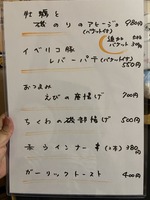 牡蠣と
磯のりのアヒージョ 980円
(バケット付)
追加の
バケット 220円
イベリコ豚
レバーパテ(バケット付)
550円
おつまみ
えびの唐揚げ 700円
ちくわの磯部揚げ 500円
赤うインナー (1本) 380円
ガーリックトースト 400円